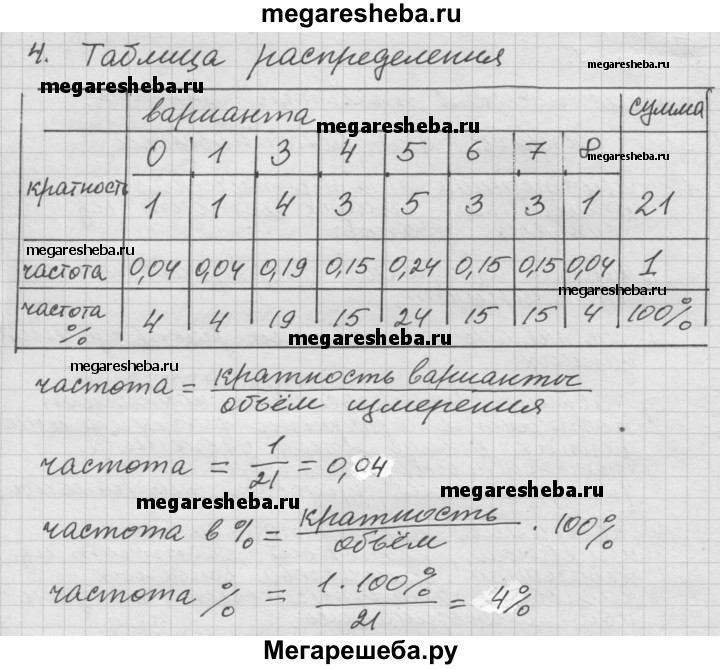 megaresheba.ru
4. Таблица распределения
megaresheba.ru
megaresheba.ru
варианта сумма
megaresheba.ru
0 1 3 4 5 6 7 8
megaresheba.ru
кратность 1 1 4 3 5 3 3 1 21
megaresheba.ru
частота 0,04 0,04 0,19 0,15 0,24 0,15 0,15 0,04 1
megaresheba.ru
частота % 4 4 19 15 24 15 15 4 100%
megaresheba.ru
megaresheba.ru
частота = кратность варианты / объём измерения
частота = 1/21 = 0,04
megaresheba.ru
megaresheba.ru
частота в % = кратность / объём · 100%
частота % = 1·100% / 21 = 4%
Мегарешеба.ру